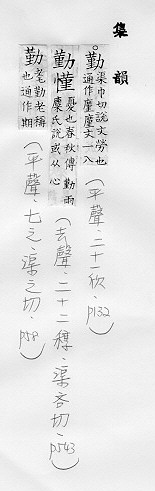 集韻
。勤 渠巾切說文勞也
通作廑廑文一入
(平聲.二十一欣.p132)
勤懂 憂也春秋傳勤雨
麋氏說或从心
(去聲.二十二稕.渠吝切.p543)
勤 耄勤老稱
也通作期
(平聲.七之.渠之切.p58)